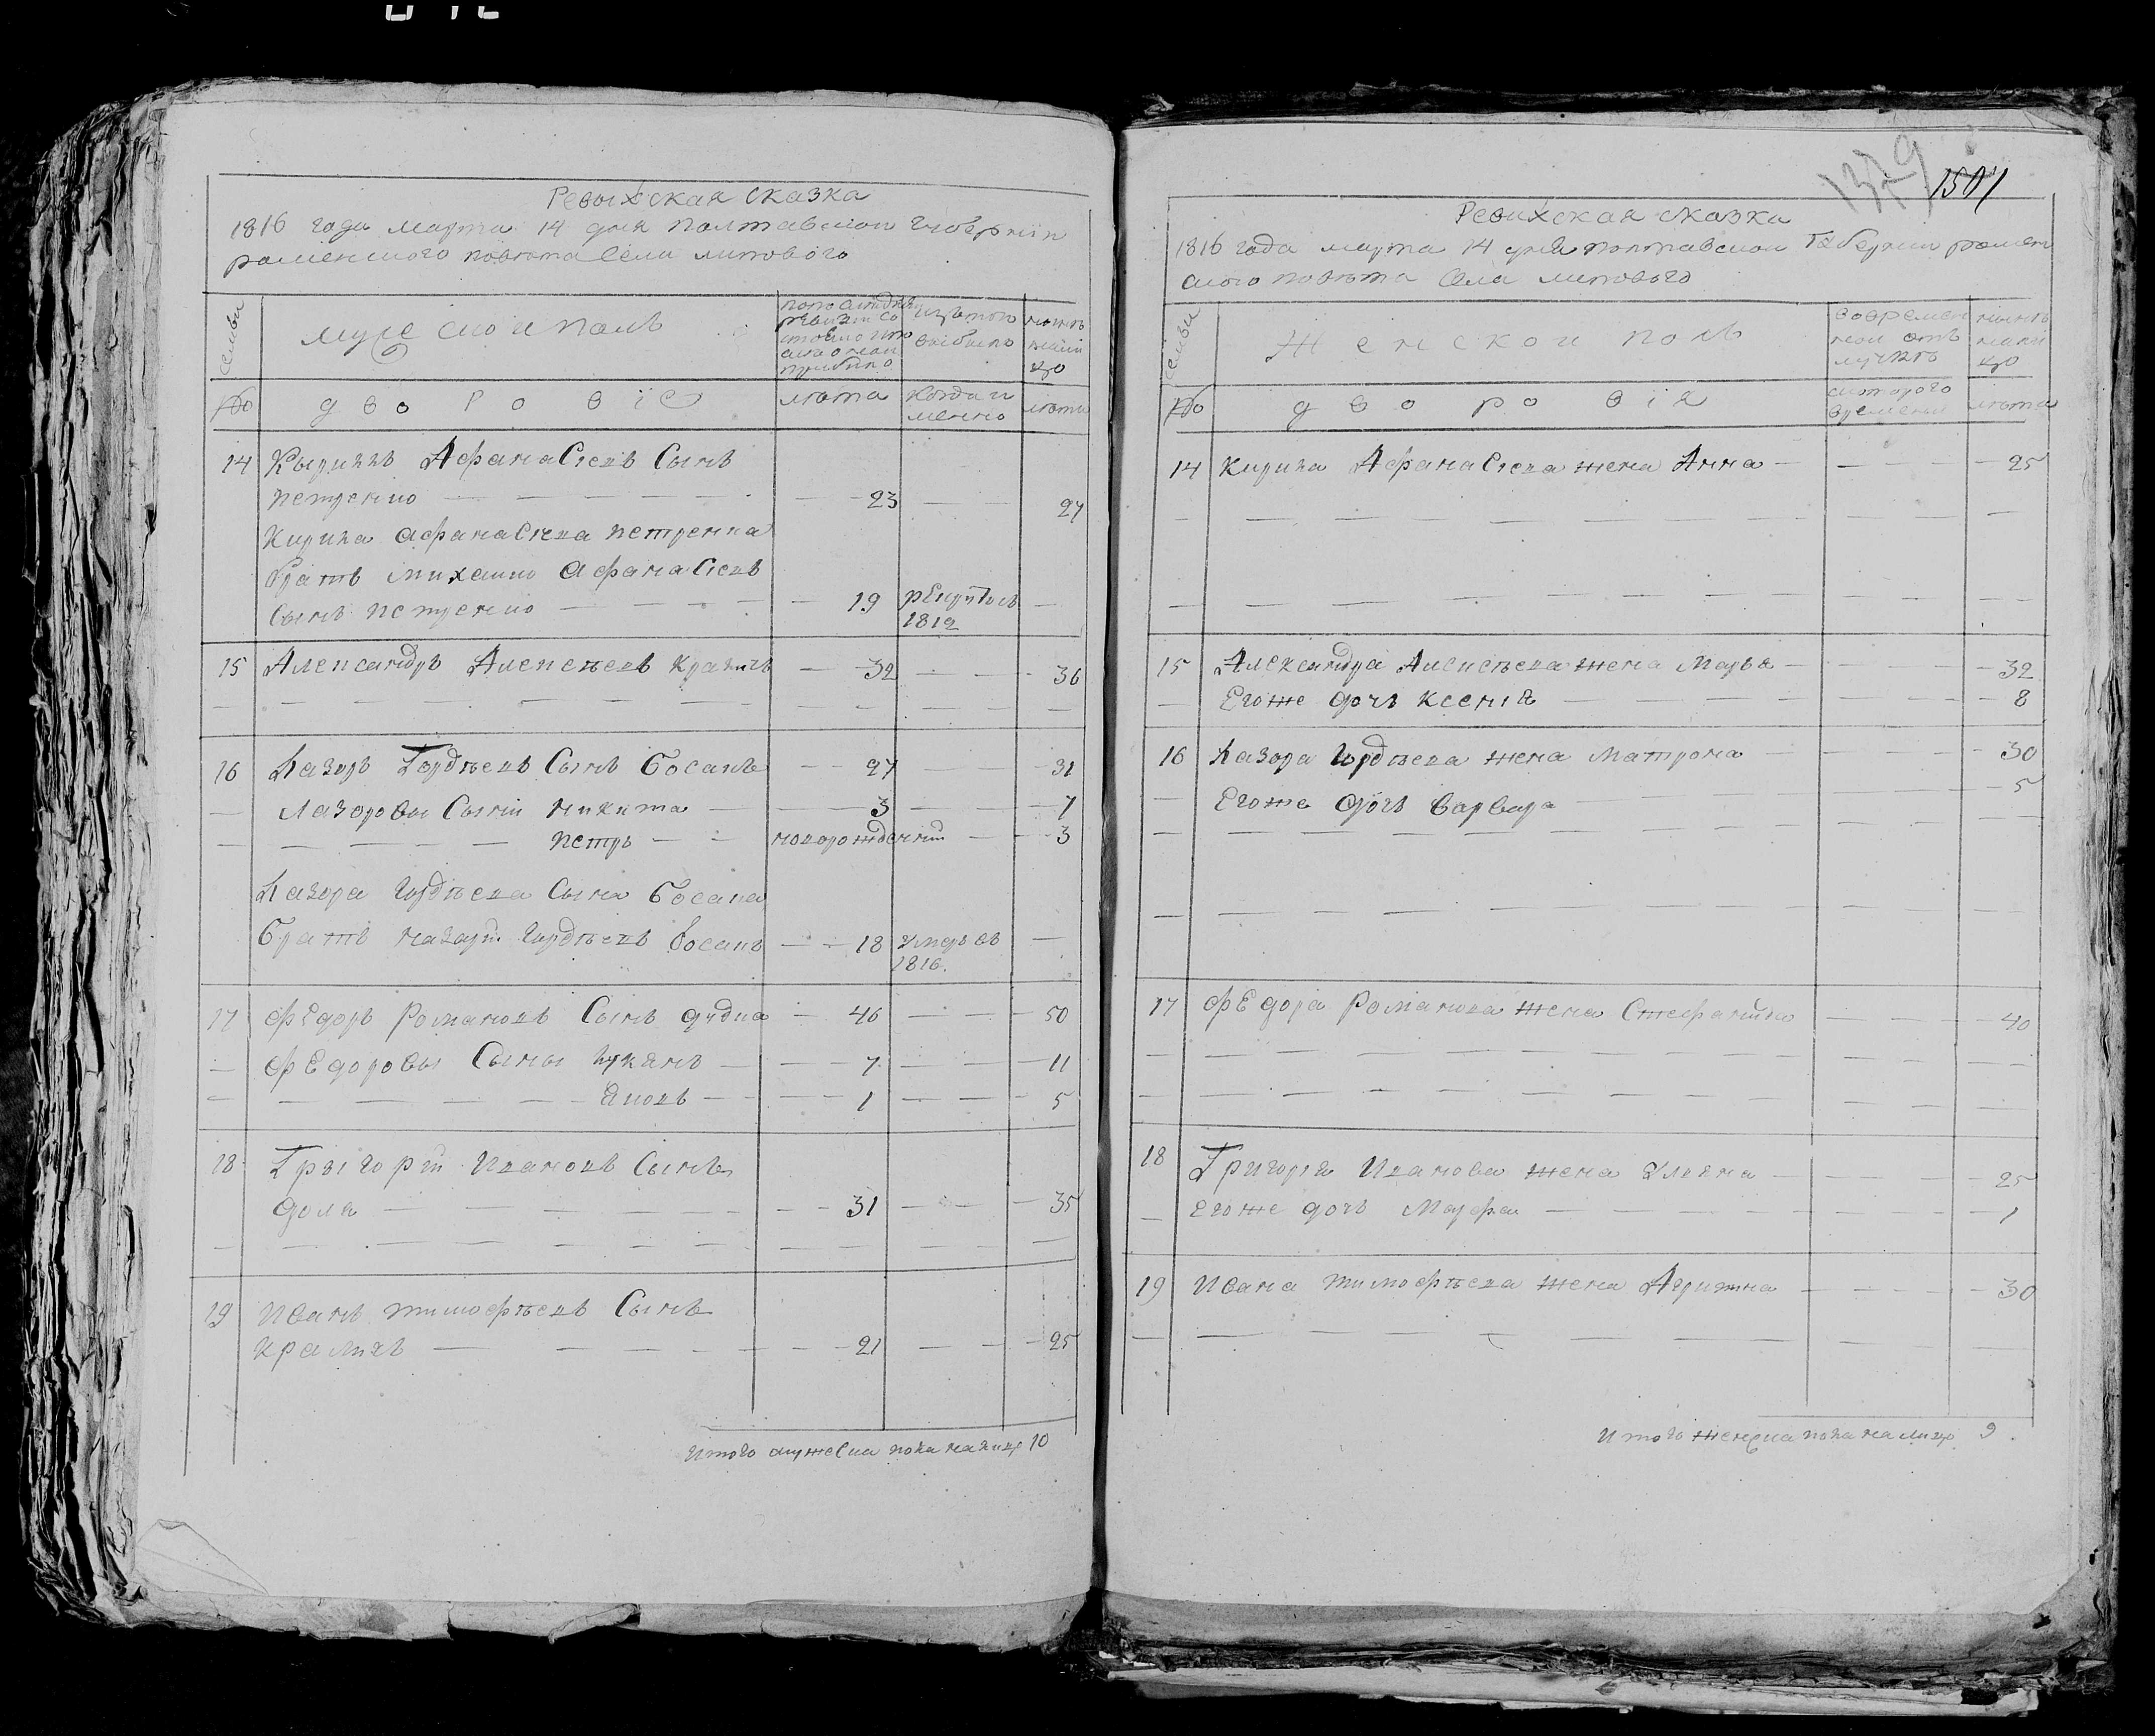 Ревыжская сказка
1816 года марта 14 дня Полтавской губернии
роменского повѣта Села липового
семьи
мужеской полъ
изътого
выбыло
нынѣ
на
лицо
№
дворовіе
лѣта
Когда и
менно
лѣта
14 Кырилъ Афанасіевъ Сынъ
петренко 23 27
Кирила афанасіева петренка
братъ михаило афанасіевъ
Сынъ петренко 19 рЕкрутомъ
1812
15 Александръ Алексѣевъ крамичъ 32 36
16 Лазоръ Гордѣевъ Сынъ босакъ 27 31
Лазоровы Сыни Никита 3 7
петръ новорожденний 3
Лазора гордѣева Сына босака
братъ назарій гордѣевъ босакъ 18 умеръ въ
1816.
17 фЕдоръ Романовъ Сынъ дудка 46 50
фЕдоровы Сыны лукянъ 7 11
Яковъ 1 5
18 Грыгорій Ивановъ Сынъ
доля 31 35
19 Иванъ тимофѣевъ Сынъ
крамичъ 21 25
Итого мужеска пола налицо 10
1329 1501
Ревижская сказка
1816 года марта 14 дня полтавской Губернии ромен
ского повѣта Села липового
семьи
Женской полъ
вовремен
ной отъ
лучкѣ
нынѣ
нали
цо
№
дворовія
скоторого
времени
лѣта
14 Кирила Афанасіева жена Анна 25
15 Александра Алексѣева жена Марья 32
Егоже дочь Ксенія 8
16 Лазора гордѣева жена Матрона 30
Егоже дочь Варвара 5
17 фЕдора Романова жена Стефанида 40
18 Григорія Иванова жена Уляна 25
Егоже дочь Марфа 1
19 Ивана тимофѣева жена 30
Итого женска пола налицо 9.